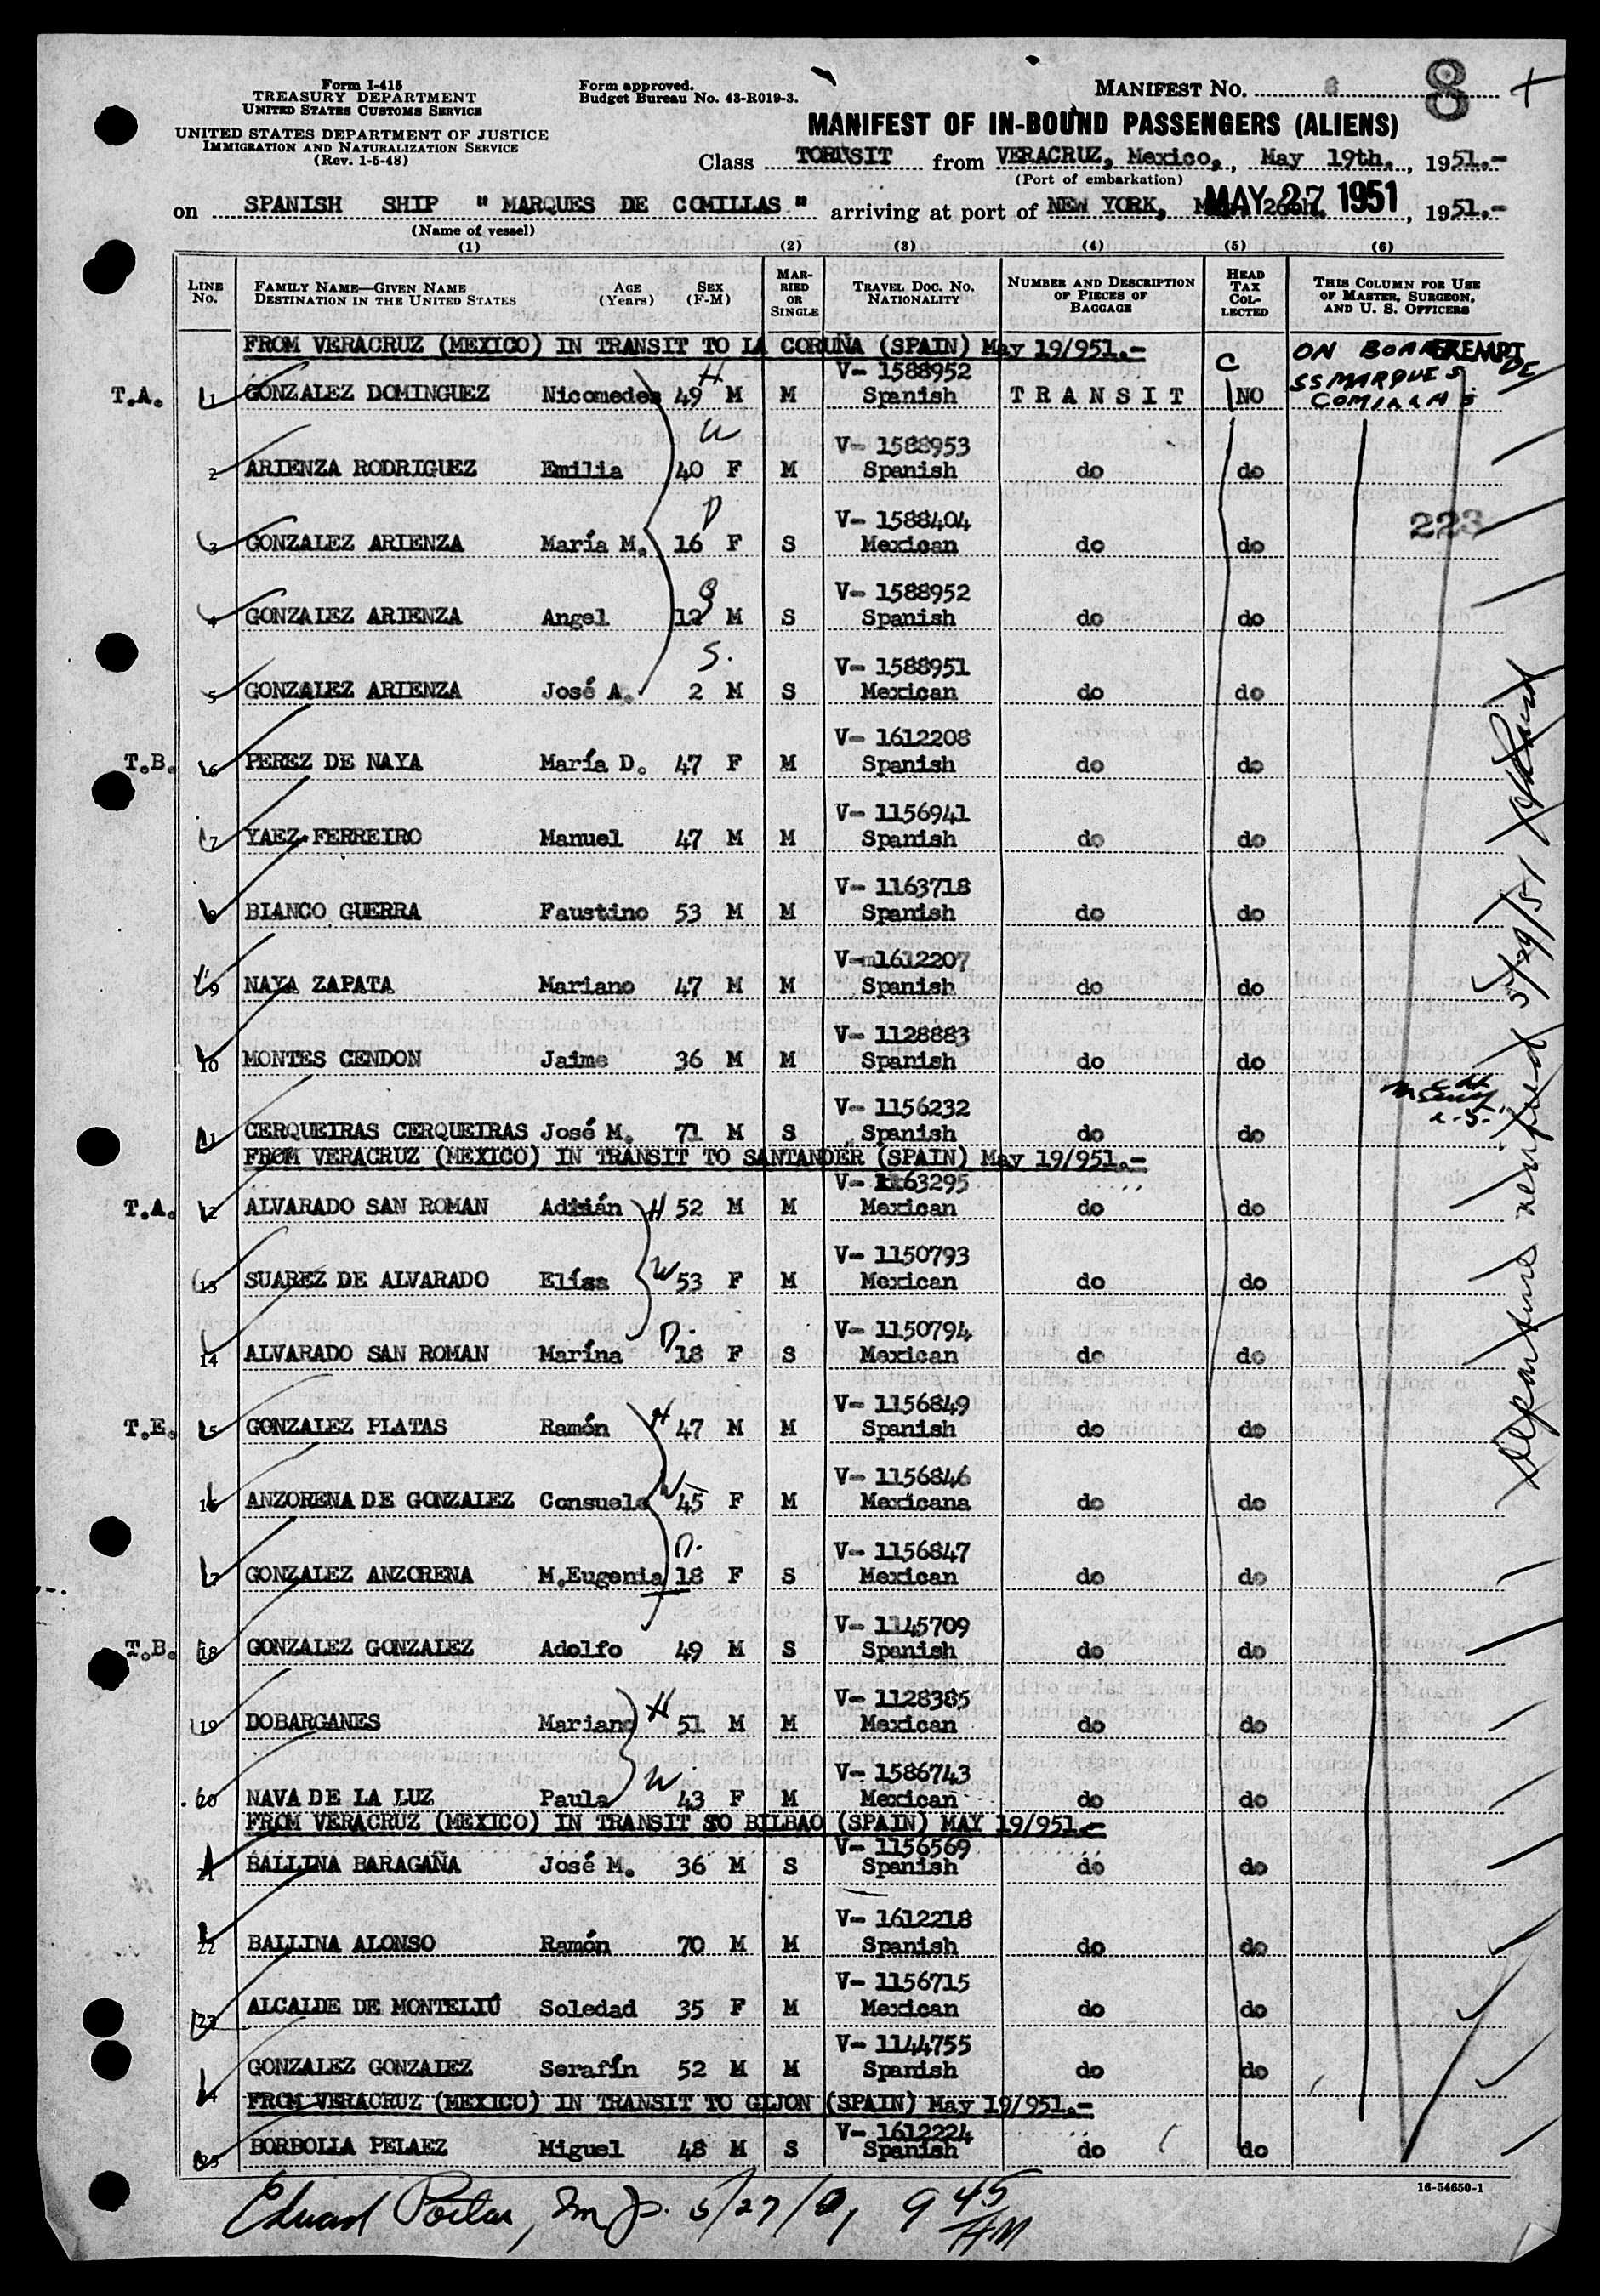 Form I-415
TREASURY DEPARTMENT
UNITED STATES CUSTOMS SERVICE
UNITED STATES DEPARTMENT OF JUSTICE
IMMIGRATION AND NATURALIZATION SERVICE
(Rev. 1-5-48)
Form approved.
Budget Bureau No. 43-R019-3.
MANIFEST NO. 8 +
MANIFEST OF IN-BOUND PASSENGERS (ALIENS)
Class from VERACRUZ, Mexico, May 19th, 1951.-
(Port of embarkation)
on SPANISH SHIP " MARQUES DE COMILLAS " arriving at port of NEW YORK, MAY 27 1951, 1951.-
(Name of vessel)
(1) (2) (3) (4) (5) (6)
LINE NO. FAMILY NAME—GIVEN NAME DESTINATION IN THE UNITED STATES AGE (Years) SEX (F-M) MARRIED OR SINGLE TRAVEL DOC. NO. NATIONALITY NUMBER AND DESCRIPTION OF PIECES OF BAGGAGE HEAD TAX COLLECTED THIS COLUMN FOR USE OF MASTER, SURGEON, AND U. S. OFFICERS
FROM VERACRUZ (MEXICO) IN TRANSIT TO LA CORUÑA (SPAIN) May 19/951.-
C ON BOARD EXEMPT
SS MARQUES DE
COMILLAS
H V- 1588952
T.A. 1 GONZALEZ DOMINGUEZ Nicomedes 49 M M Spanish TRANSIT NO
W V- 1588953
2 ARIENZA RODRIGUEZ Emilia 40 F M Spanish do do
D V- 1588404 223
3 GONZALEZ ARIENZA María M. 16 F S Mexican do do
S V- 1588952
4 GONZALEZ ARIENZA Angel 12 M S Spanish do do
S. V- 1588951
5 GONZALEZ ARIENZA José A. 2 M S Mexican do do
V- 1612208
T.B. 6 PEREZ DE NAYA María D. 47 F M Spanish do do
V- 1156941
7 YAEZ FERREIRO Manuel 47 M M Spanish do do
V- 1163718
8 BIANCO GUERRA Faustino 53 M M Spanish do do
V- 1612207
9 NAYA ZAPATA Mariano 47 M M Spanish do do
V- 1128883
10 MONTES CENDON Jaime 36 M M Spanish do do
V- 1156232
11 CERQUEIRAS CERQUEIRAS José M. 71 M S Spanish do do
FROM VERACRUZ (MEXICO) IN TRANSIT TO SANTANDER (SPAIN) May 19/951.-
V- 1163295
T.A. 12 ALVARADO SAN ROMAN Adrián H 52 M M Mexican do do
V- 1150793
13 SUAREZ DE ALVARADO Elísa W 53 F M Mexican do do
D. V- 1150794
14 ALVARADO SAN ROMAN Marína 18 F S Mexican do do
V- 1156849
T.E. 15 GONZALEZ PLATAS Ramón H 47 M M Spanish do do
V- 1156846
16 ANZORENA DE GONZALEZ Consuelo W 45 F M Mexicana do do
D. V- 1156847
17 GONZALEZ ANZORENA M.Eugenia 18 F S Mexican do do
V- 1145709
T.B. 18 GONZALEZ GONZALEZ Adolfo 49 M S Spanish do do
V- 1128385
19 DOBARGANES Mariano H 51 M M Mexican do do
V- 1586743
20 NAVA DE LA LUZ Paula W 43 F M Mexican do do
FROM VERACRUZ (MEXICO) IN TRANSIT SO BILBAO (SPAIN) MAY 19/951.-
V- 1156569
21 BALLINA BARAGAÑA José M. 36 M S Spanish do do
V- 1612218
22 BALLINA ALONSO Ramón 70 M M Spanish do do
V- 1156715
23 ALCALDE DE MONTELIÚ Soledad 35 F M Mexican do do
V- 1144755
24 GONZALEZ GONZALEZ Serafín 52 M M Spanish do do
FROM VERACRUZ (MEXICO) IN TRANSIT TO GIJON (SPAIN) May 19/951.-
V- 1612224
25 BORBOLLA PELAEZ Miguel 48 M S Spanish do do
Departure verified 5/29/51
16-54650-1
5/27/51, 9 45 AM